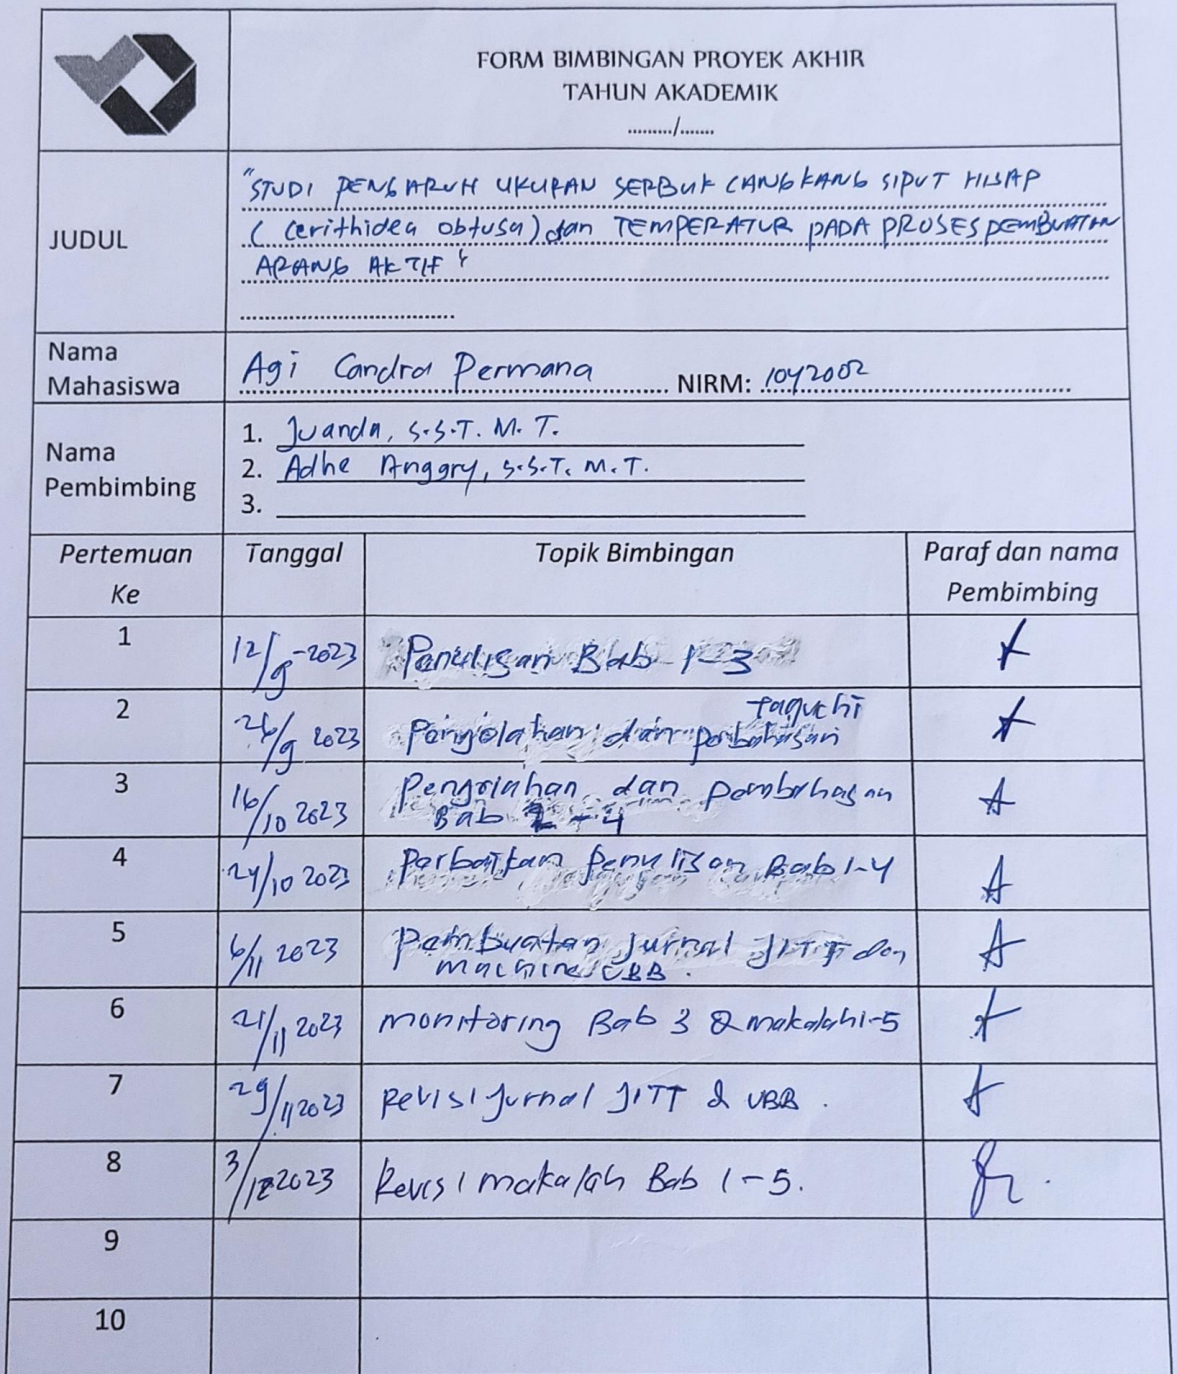 FORM BIMBINGAN PROYEK AKHIR
TAHUN AKADEMIK
........./.......
JUDUL
"STUDI PENGARUH UKURAN SERBUK CANGKANG SIPUT HISAP
( cerithidea obtusa) dan TEMPERATUR PADA PROSES PEMBUATAN
ARANG AKTIF "
Nama
Mahasiswa
Agi Candra Permana NIRM: 1042002
Nama
Pembimbing
1. Juanda, S.S.T. M.T.
2. Adhe Anggry, S.S.T. M.T.
3.
Pertemuan
Ke
Tanggal
Topik Bimbingan
Paraf dan nama
Pembimbing
1 12/9-2023 Penulisan Bab 1-3
2 26/9 2023 Pengolahan dan taguchi
3 16/10 2023 Pengolahan dan pembahasan
Bab 2-4
4 24/10 2023 Perbaikan Penulisan Bab 1-4
5 6/11 2023 Pembuatan Jurnal JITT dan
machine UBB.
6 21/11 2023 monitoring Bab 3 & makalah 1-5
7 29/11 2023 Revisi Jurnal JITT & UBB.
8 3/12 2023 Revisi makalah Bab 1-5.
9
10